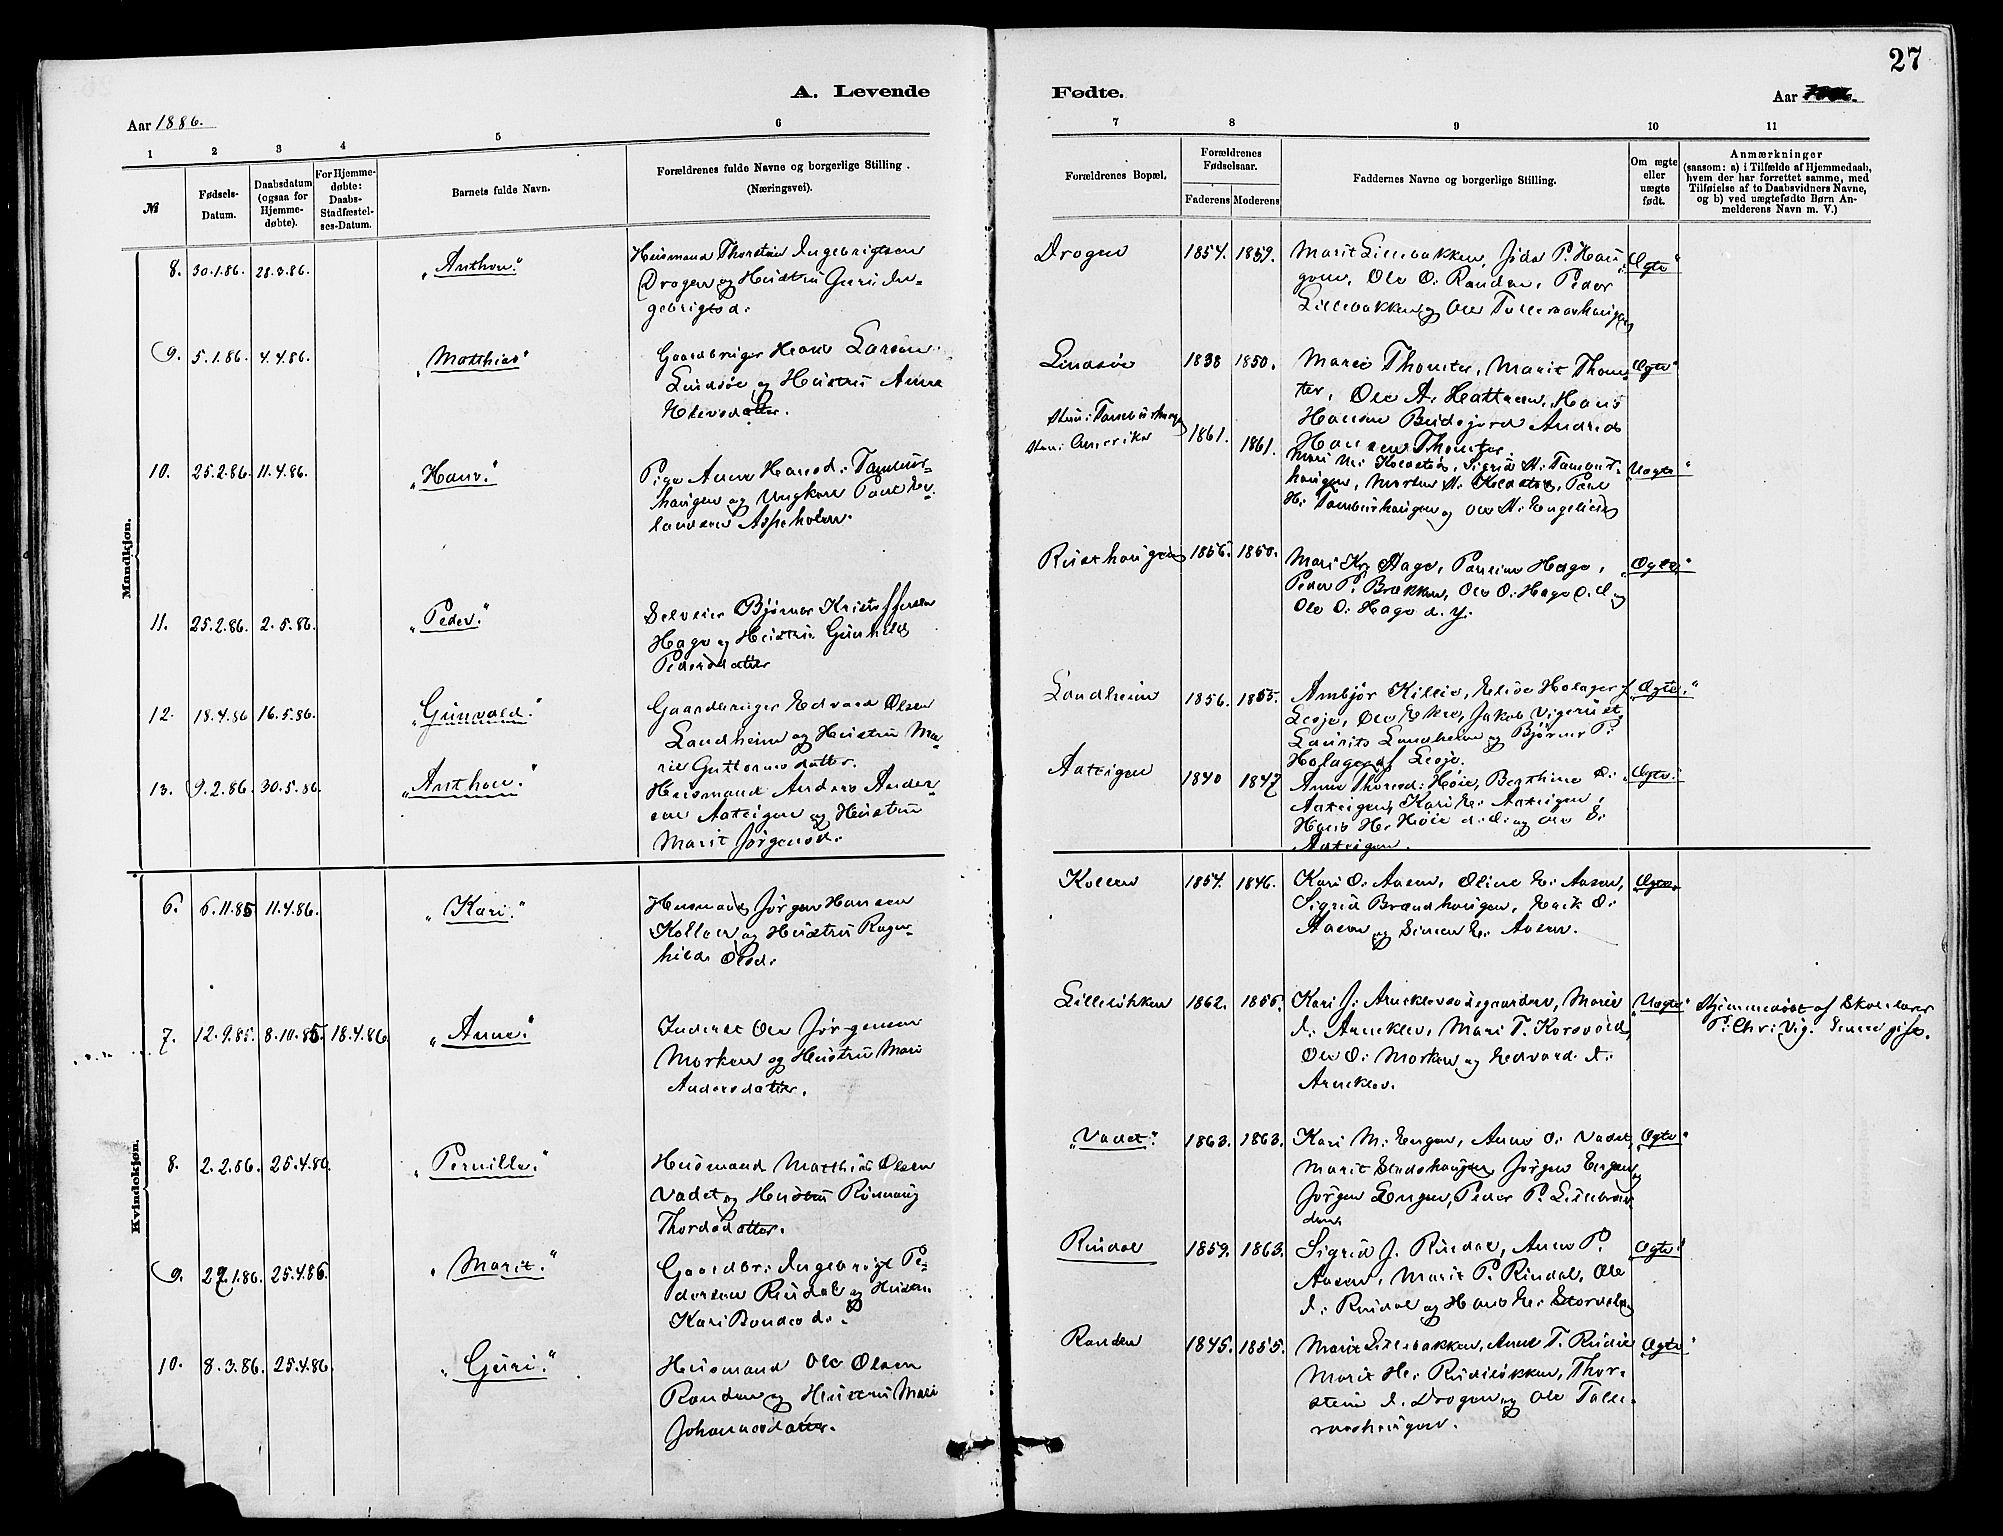 27
A. Levende
Fødte.
Aar 1886.
Aar
1 2 3 4 5 6 7 8 9 10 11
№
Fødsels-
Datum.
Daabsdatum
(ogsaa for
Hjemme-
døbte).
For Hjemme-
døbte:
Daabs-
Stadfæstel-
ses-Datum.
Barnets fulde Navn.
Forældrenes fulde Navne og borgerlige Stilling.
(Næringsvei).
Forældrenes Bopæl.
Forældrenes
Fødselsaar.
Faderens Moderens
Faddernes Navne og borgerlige Stilling.
Om ægte
eller
uægte
født.
Anmærkninger
(saasom: a) i Tilfælde af Hjemmedaab,
hvem der har forrettet samme, med
Tilføielse af to Daabsvidners Navne,
og b) ved uægtefødte Børn An-
melderens Navn m. V.)
Mandkjøn.
8. 30.1.86. 28.3.86. "Anthon."
Huusmand Thorstein Ingebrigtsen
Drogen og Hustru Guri In-
gebrigtsd.
Drogen 1854. 1859.
Marit Lillebakken,
Ole O. Randen, Peder
Lillebakken og Ole
Ægte"
9. 5.1.86. 4.4.86. "Matthias"
Gaardbruger Hans Larsen
Lindsøe og Hustru Anne
Lindsøe 1838 1850.
Mari Thomter, Marit Thom-
ter, Ole A.
Hansen Thomter.
Ægte"
10. 25.2.86. 11.4.86. "Hans."
Pige Anne Hansd. Tambur-
haugen og Ungkarl Paul Er-
landsen Aspeholen.
1861. 1861.
"Uægte"
11. 25.2.86. 2.5.86. "Peder."
Selveier Bjørner Kristoffersen
Hage og Hustru Gunhild
Pedersdatter
Rusthaugen 1856. 1850.
Mari Kr. Hage, Pauline Hage,
Peder P. Brækken, Ole O. Hage d. e. og
Ole O. Hage d. y.
"Ægte"
12. 18.4.86 16.5.86. "Gunvald."
Gaardbruger Edvard Olsen
Landheim og Hustru Ma-
rie Guttormsdatter.
Landheim 1856. 1855.
Ambjør Killie, Elise Holager
Lesje, Ole Ekre, Jakob Vigerust,
Laurits Landheim og Bjørner P.
Holager af Lesje.
"Ægte."
13. 9.2.86. 30.5.86. "Anthon."
Huusmand Anders Ander-
sen Aateigen og Hustru
Marit Jørgensd.
Aateigen 1840 1847
Anne Thoresd. Høie, Berthine O.
Aateigen, Kari E. Aateigen,
Hans H. Høie d. e. og Ole S.
Aateigen.
"Ægte."
Kvindekjøn.
6. 6.11.85 11.4.86. "Kari."
Husmand Jørgen Hansen
Kollen og Hustru Ragn-
hild Olsd.
Kollen 1854. 1846.
Kari O. Aasen, Oline E. Aasen,
Sigrid Brændhaugen, Erik O.
Aasen og Simen E. Aasen.
Ægte.
7. 12.9.85. 8.10.85. 18.4.86. "Anne."
Inderst Ole Jørgensen
Morken og Hustru Mari
Andersdatter.
Lilleløkken 1862. 1856.
Kari J. Arneklevsødegaarden, Marie
A. Arneklev, Mari T. Korsvold,
Ole O. Morken og Edvard A.
Arneklev.
"Uægte"
Hjemmedøbt af Skolelærer
P. Chr. Vig.
8. 2.2.86. 25.4.86. "Pernille."
Husmand Matthias Olsen
Vadet og Hustru Rønnaug
Thordsdatter.
"Vadet." 1863. 1863.
Kari M. Engen, Anne O. Vadet,
Marit Stadshaugen, Jørgen Engen,
Jørgen Engen, Peder P. Lillebræn-
den.
Ægte"
9. 27.1.86. 25.4.86. "Marit."
Gaardbr. Ingebrigt Pe-
dersen Rindal og Hustru
Kari Bondesd.
Rindal 1859. 1863.
Sigrid J. Rindal, Anne P.
Aasen, Marit P. Rindal, Ole
I. Rindal og Hans E. Stordalen
Ægte."
10. 8.3.86. 25.4.86. "Guri."
Husmand Ole Olsen
Randen og Hustru Mari
Johannesdatter.
Randen 1845. 1855.
Marit Lillebakken, Anne T. Rudie
Marit H. Rudiløkken, Thor-
stein I. Drogen og Ole Talle-
raashaugen.
Ægte"